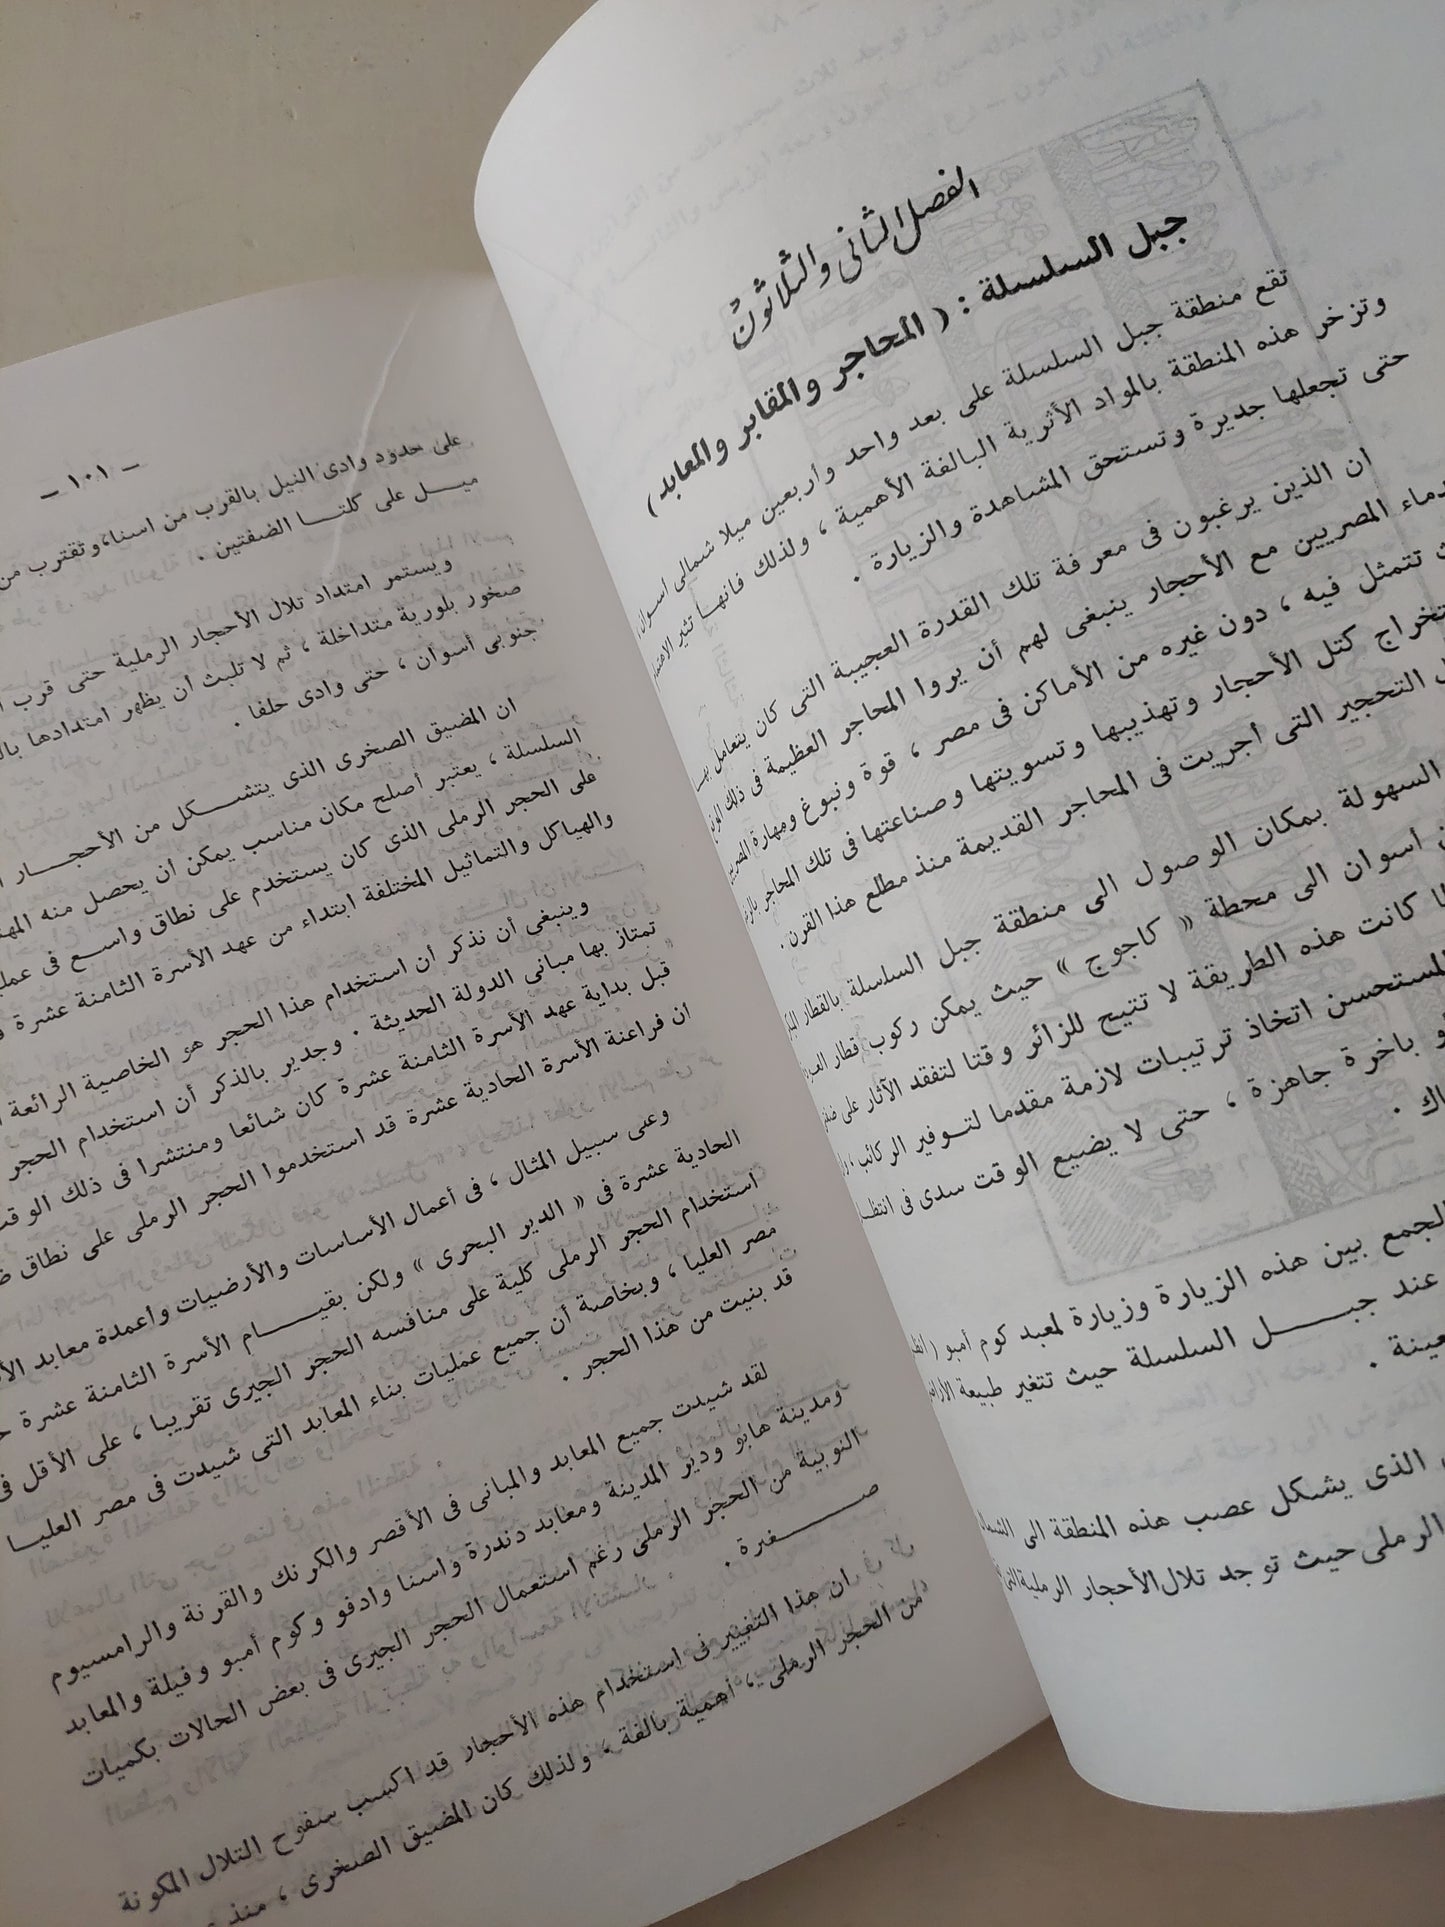 الفصل الثانى والثلاثون
جبل السلسلة : ( المحاجر والمقابر والمعابد )
تقع منطقة جبل السلسلة على بعد واحد واربعين ميلا شمالى اسوان ،
وتزخر هذه المنطقة بالمواد الأثرية البالغة الأهمية ، ولذلك فانها تثير الاهتمام
حتى تجعلها جديرة وتستحق المشاهدة والزيارة .
ان الذين يرغبون فى معرفة تلك القدرة العجيبة التى كان يتعامل بها
المصريين مع الأحجار ينبغى لهم أن يروا المحاجر العظيمة فى ذلك
تتمثل فيه ، دون غيره من الأماكن فى مصر ، قوة ونبوغ ومهارة
كتل الأحجار وتهذيبها وتسويتها وصناعتها فى تلك المحاجر
التحجير التى أجريت فى المحاجر القديمة منذ مطلع هذا القرن .
السهولة بمكان الوصول الى منطقة جبل السلسلة بالقطار
اسوان الى محطة « كاجوج » حيث يمكن ركوب قطار
كانت هذه الطريقة لا تتيح للزائر وقتا لتفقد الآثار على
اتخاذ ترتيبات لازمة مقدما لتوفير الركائب ،
باخرة جاهزة ، حتى لا يضيع الوقت سدى فى
الجمع بين هذه الزيارة وزيارة لمعبد كوم أمبو (
عند جبل السلسلة حيث تتغير طبيعة
الذى يشكل عصب هذه المنطقة الى
الرملى حيث توجد تلال الأحجار الرملية
— ١٠١ —
على حدود وادى النيل بالقرب من اسنا، وتقترب من
ميل على كلتا الضفتين .
ويستمر امتداد تلال الأحجار الرملية حتى قرب
صخور بلورية متداخلة ، ثم لا تلبث أن يظهر امتدادها
جنوبى أسوان ، حتى وادى حلفا .
ان المضيق الصخرى الذى يتشكل من الأحجار
السلسلة ، يعتبر أصلح مكان مناسب يمكن ان يحصل منه
على الحجر الرملى الذى كان يستخدم على نطاق واسع فى
والهياكل والتماثيل المختلفة ابتداء من عهد الأسرة الثامنة عشرة
وينبغى أن نذكر أن استخدام هذا الحجر هو الخاصية الرائعة
تمتاز بها مبانى الدولة الحديثة . وجدير بالذكر أن استخدام الحجر
قبل بداية عهد الأسرة الثامنة عشرة كان شائعا ومنتشرا فى ذلك الوقت
ان فراعنة الأسرة الحادية عشرة قد استخدموا الحجر الرملى على نطاق
وعلى سبيل المثال ، فى أعمال الأساسات والأرضيات واعمدة معابد
الحادية عشرة فى « الدير البحرى » ولكن بقيام الأسرة الثامنة عشرة
استخدام الحجر الرملى كلية على منافسه الحجر الجيرى تقريبا ، على الأقل فى
مصر العليا ، وبخاصة أن جميع عمليات بناء المعابد التى شيدت فى مصر العليا
قد بنيت من هذا الحجر .
لقد شيدت جميع المعابد والمبانى فى الأقصر والكرنك والقرنة والرامسيوم
ومدينة هابو ودير المدينة ومعابد دندرة واسنا وادفو وكوم أمبو وفيلة والمعابد
النوبية من الحجر الرملى رغم استعمال الحجر الجيرى فى بعض الحالات بكميات
صغيرة .
ان هذا التغيير فى استخدام هذه الأحجار قد اكسب سفوح التلال المكونة
من الحجر الرملى ، أهمية بالغة . ولذلك كان المضيق الصخرى ، منذ